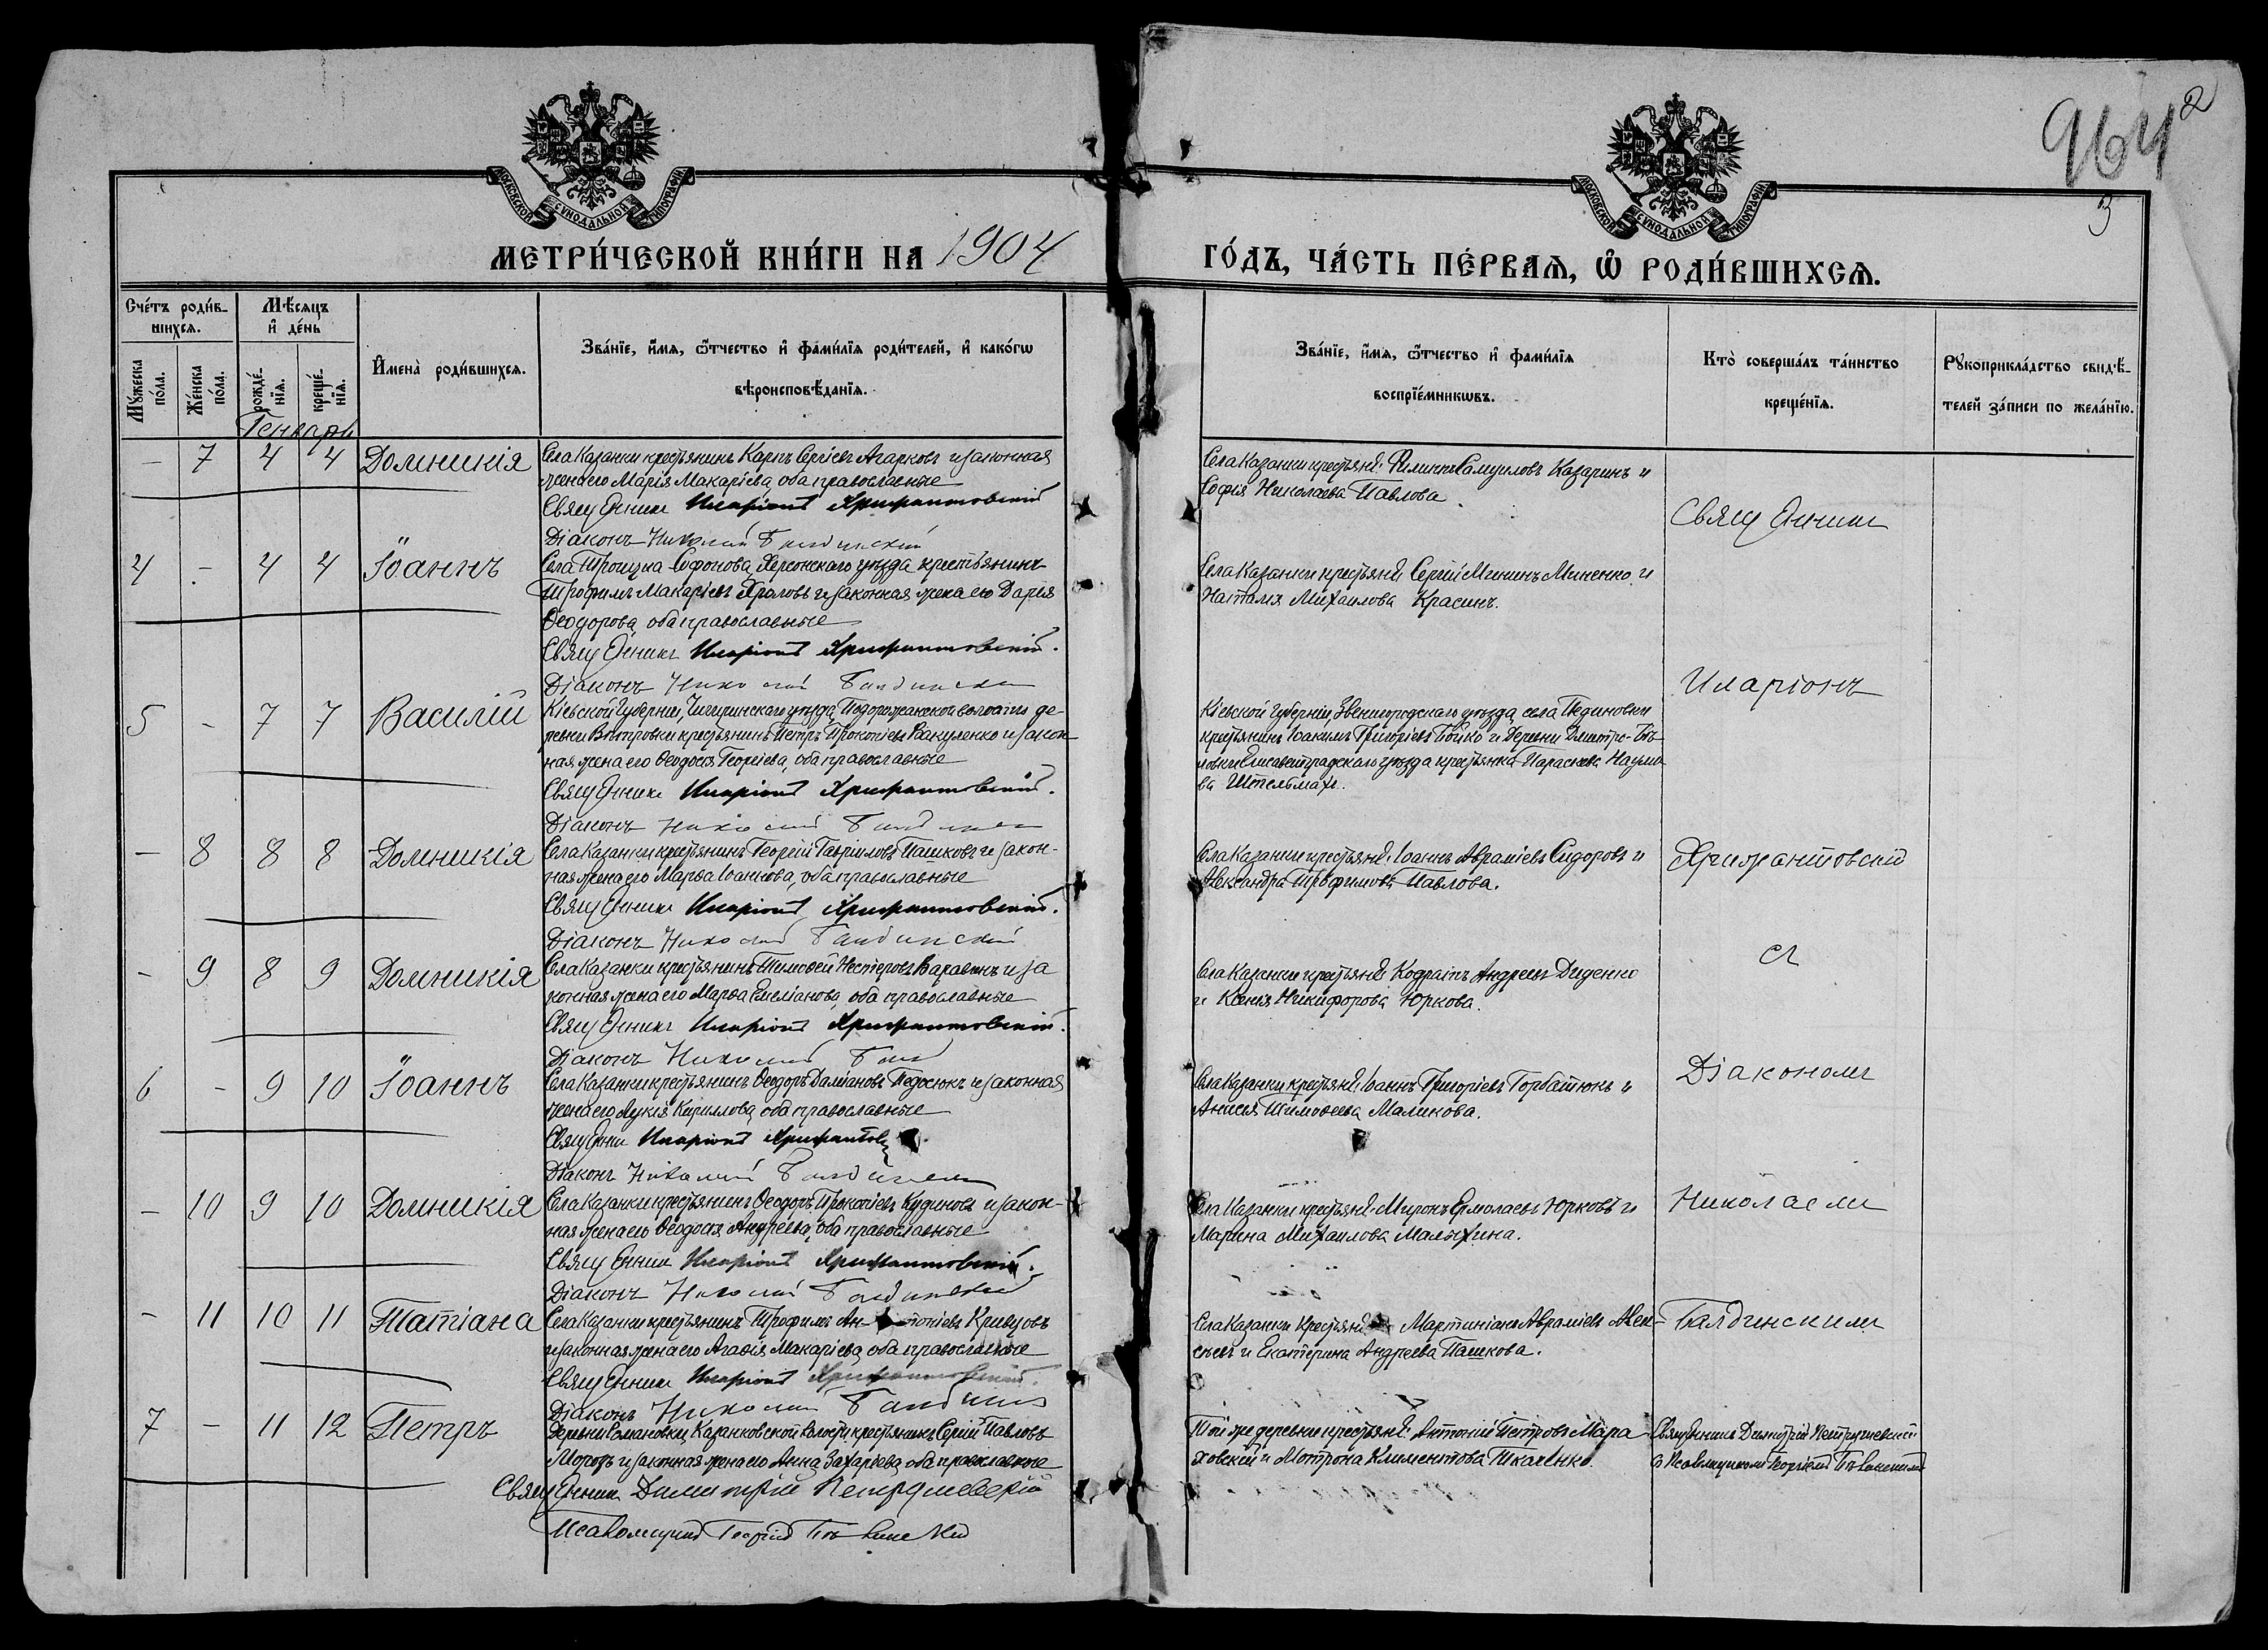 964 2
3
МОСКОВСКОЙ СѴНОДАЛЬНОЙ ТИПОГРАФІИ
МОСКОВСКОЙ СѴНОДАЛЬНОЙ ТИПОГРАФІИ
МЕТРИ́ЧЕСКОЙ КНИ́ГИ НА 1904
ГО́ДЪ, ЧА́СТЬ ПЕ́РВАѦ, Ѽ РОДИ́ВШИХСѦ.
Сче́тъ роди́в-
шихсѧ.
Мѣ́сѧцъ
и҆ де́нь
Мꙋ́жеска
по́ла.
Же́нска
по́ла.
рожде́-
нїѧ.
креще́-
нїѧ.
И҆мена̀ роди́вшихсѧ.
Зва́нїе, и҆́мѧ, ѻ҆́тчество и҆ фамилїѧ роди́телей, и҆ како́гѡ
вѣроисповѣ́данїѧ.
Зва́нїе, и҆́мѧ, ѻ҆́тчество и҆ фамилїѧ
воспрїе́мникѡвъ.
Кто̀ соверша́лъ та́инство
креще́нїѧ.
Рꙋкоприкла́дство свидѣ́-
телей за́писи по жела́нїю.
Генварь
- 7 4 4 Домникія Села Казанки крестьянинъ Карпъ Сергіевъ Агарковъ и законная
жена его Марія Макаріева, оба православные
Священникъ Иларіонъ Хрисантовскій
Діаконъ Николай Балдинскій
Села Казанки крестьяне: Филиппъ Самуиловъ Казаринъ и
Софія Николаева Павлова
4 - 4 4 Іоаннъ Села Троицка-Сафонова, Херсонскаго уѣзда крестьянинъ
Трофимъ Макаріевъ Фроловъ и законная жена его Дарья
Ѳеодорова, оба православные
Священникъ Иларіонъ Хрисантовскій.
Діаконъ Николай Балдинскій
Села Казанки крестьяне Сергій Мининъ Миненко и
Наталія Михаилова Красинъ.
5 - 7 7 Василій Кіевской Губерніи, Чигиринскаго уѣзда, Подорожанской волости де-
ревни Витровки крестьянинъ Петръ Прокопіевъ Вакуленко и закон-
ная жена его Ѳеодосія Георгіева, оба православные
Священникъ Иларіонъ Хрисантовскій.
Діаконъ Николай Балдинскій
Кіевской губерніи, Звенигородскаго уѣзда, села Пединовки
крестьянинъ Іоакимъ Григоріевъ Бойко и деревни Дмитро-Бѣ-
ловки Елисаветградскаго уѣзда крестьянка Параскева Наумо-
ва Штельмахъ.
- 8 8 8 Домникія Села Казанки крестьянинъ Георгій Гавриловъ Пашковъ и закон-
ная жена его Марѳа Іоаннова, оба православные
Священникъ Иларіонъ Хрисантовскій.
Діаконъ Николай Балдинскій
Села Казанки крестьяне: Іоаннъ Авраміевъ Сидоровъ и
Александра Трофимова Павлова.
- 9 8 9 Домникія Села Казанки крестьянинъ Тимоѳей Нестеровъ Варавинъ и за
конная жена его Марѳа Емеліанова, оба православные
Священникъ Иларіонъ Хрисантовскій.
Діаконъ Николай Балд
Села Казанки крестьяне Кодратъ Андреевъ Диденко
и Ксенія Никифорова Юркова.
6 - 9 10 Іоаннъ Села Казанки крестьянинъ Ѳеодоръ Даміановъ Педосюкъ и законная
жена его Лукія Кириллова, оба православные
Иларіонъ
Діаконъ Николай Балдинскій
Села Казанки крестьяне: Іоаннъ Григоріевъ Горбатюкъ и
Анисія Тимоѳеева Маликова.
- 10 9 10 Домникія Села Казанки крестьянинъ Ѳеодоръ Прокопіевъ Кудиновъ и закон-
ная жена его Ѳеодосія Андреева, оба православные
Священникъ Иларіонъ Хрисантовскій.
Діаконъ Николай Балдинскій
Села Казанки крестьяне: Миронъ Ермолаевъ Юрковъ и
Марина Михаилова Малыхина.
- 11 10 11 Татіана Села Казанки крестьянинъ Трофимъ Ан тоніевъ Кривцовъ
и законная жена его Агаѳія Макаріева, оба православные
Священникъ Иларіонъ Хрисантовскій.
Діаконъ Николай Балдинскій
Села Казанки крестьяне Мартиніанъ Авраміевъ Алек-
сѣевъ и Екатерина Андреева Пашкова.
7 - 11 12 Петръ Деревни Романовки, Казанковской волости крестьянинъ Сергій Павловъ
Морозъ и законная жена его Анна Захаріева, оба православные
Священникъ Димитрій Петрушевскій
Псаломщикъ Георгій
Той же деревни крестьяне: Антоній Петровъ Мара-
ховскій и Мотрона Климентова Ткаченко.
Священникъ
Иларіонъ
Хрисантовскій
съ
Діакономъ
Николаемъ
Балдинскимъ
Священникъ Димитрій Петрушевскій
съ Псаломщикомъ Георгіемъ